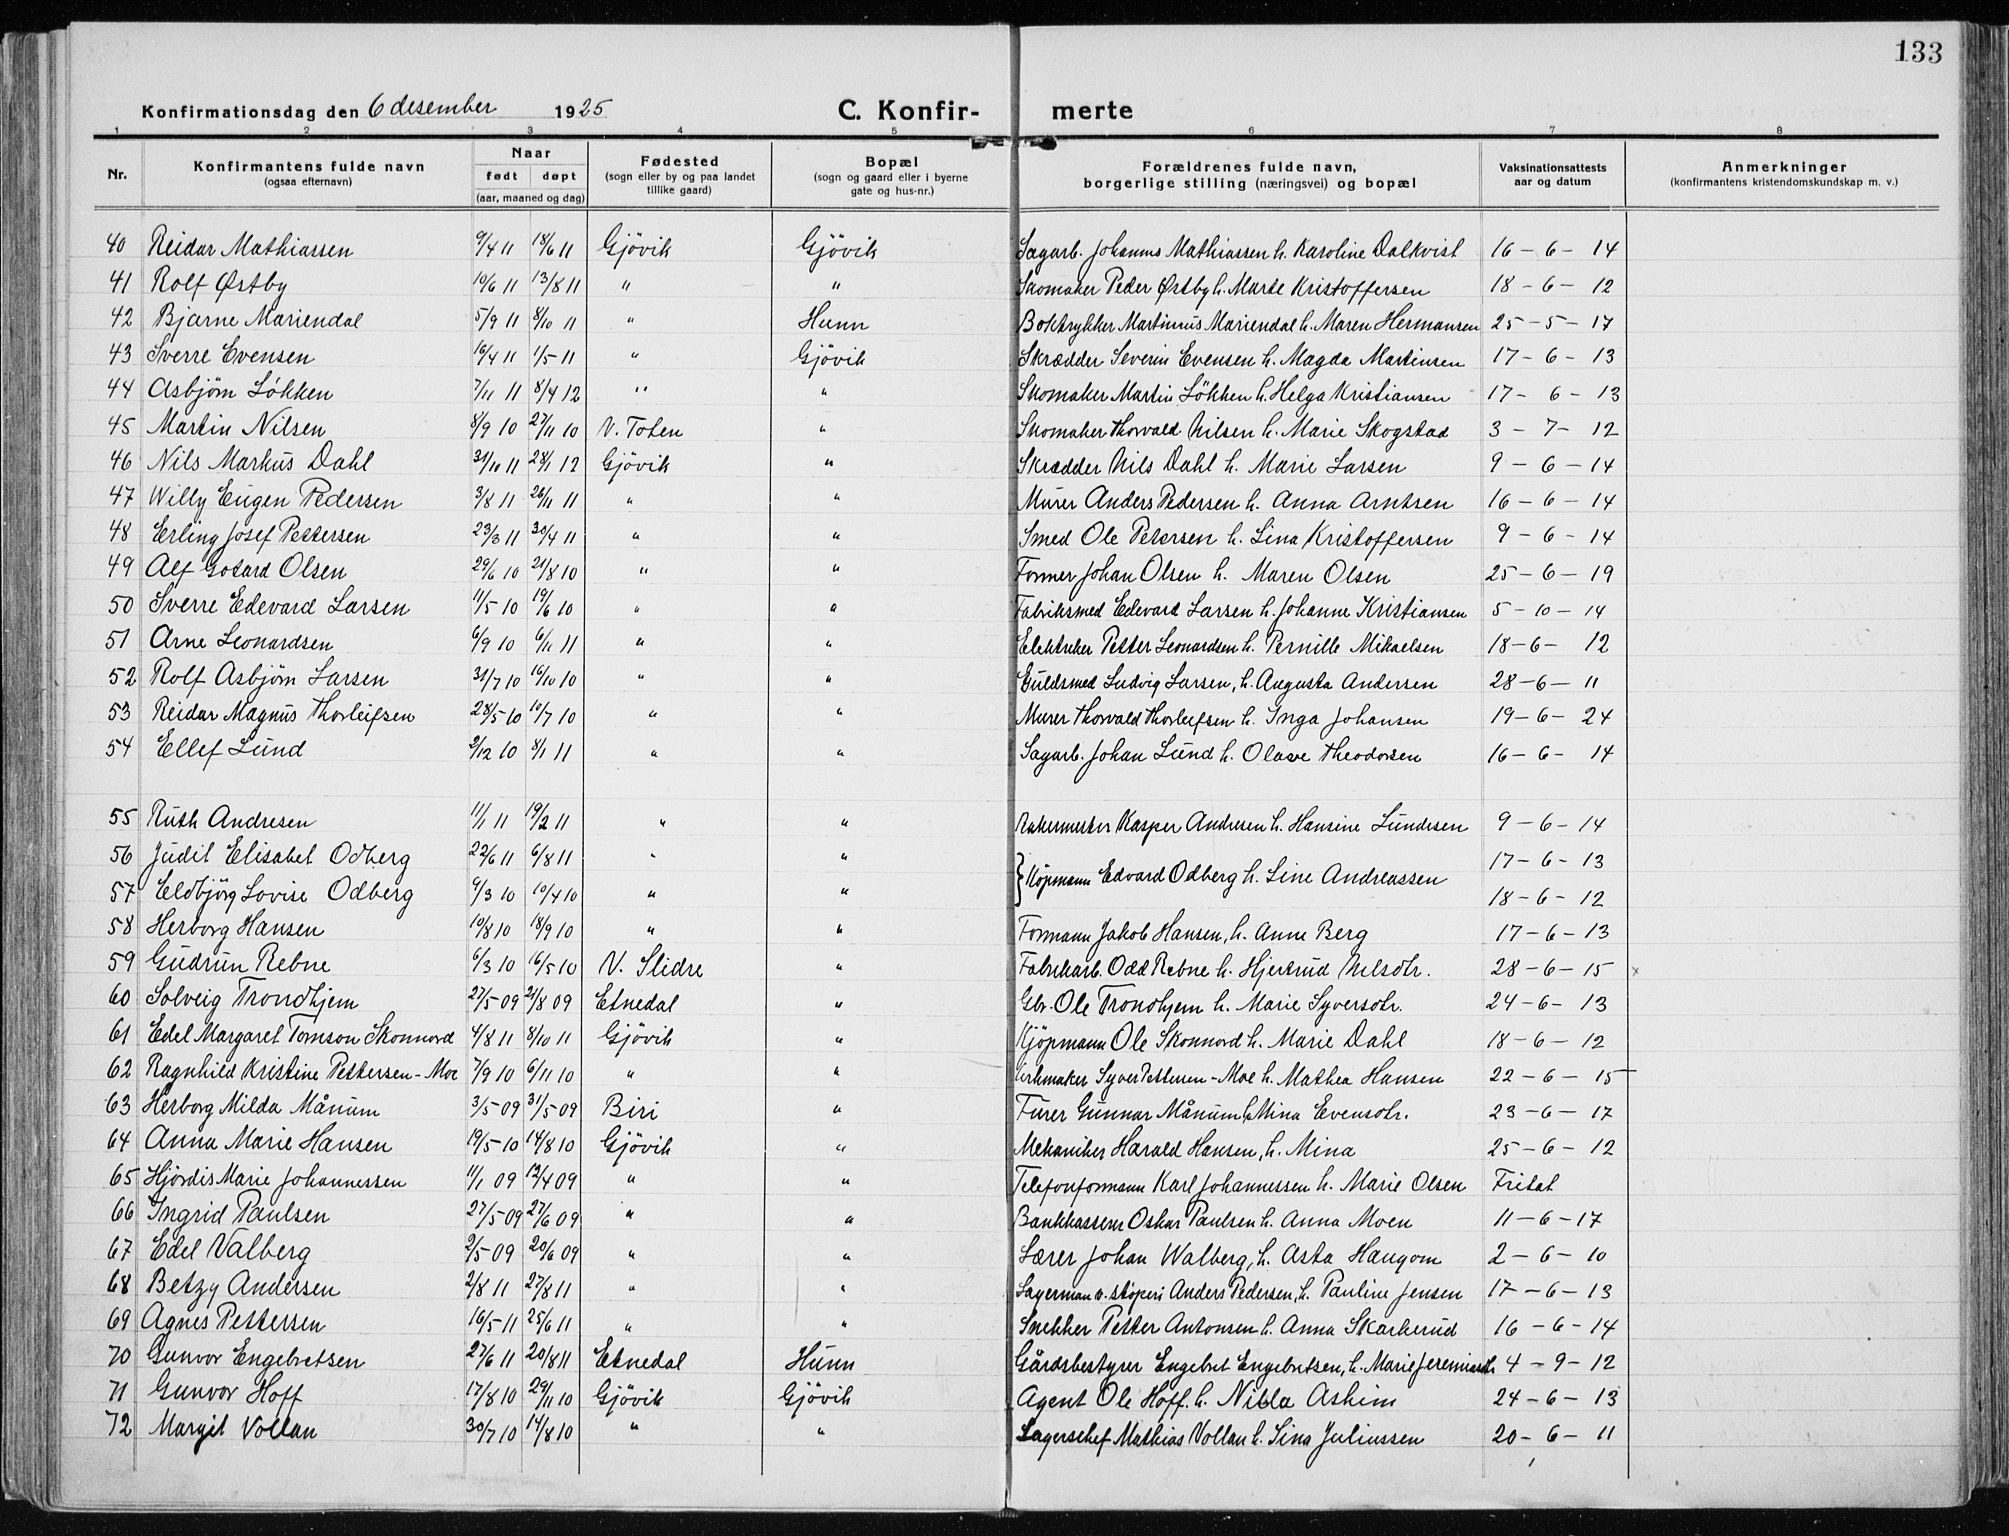 133
Konfirmationsdag den 6 desember 1925 C. Konfir- merte
1 2 3 4 5 6 7 8
Nr. Konfirmantens fulde navn (ogsaa efternavn) Naar født døpt (aar, maaned og dag) Fødested (sogn eller by og paa landet tillike gaard) Bopæl (sogn og gaard eller i byerne gate og hus-nr.) Forældrenes fulde navn, borgerlige stilling (næringsvei) og bopæl Vaksinationsattests aar og datum Anmerkninger (konfirmantens kristendomskundskap m. v.)
40 Reidar Mathiassen 9/4 11 18/6 11 Gjövik Gjövik Sagarb. Johannes Mathiassen h. Karoline Dalkvist 16 - 6 - 14
41 Rolf Østby 10/6 11 13/8 11 " " Skomaker Peder Østby h. Marte Kristoffersen 18 - 6 - 12
42 Bjarne Mariendal 5/9 11 8/10 11 " Hunn Boktrykker Martinius Mariendal h. Maren Hermansen 25 - 5 - 17
43 Sverre Evensen 16/4 11 1/5 11 " Gjövik Skrædder Severin Evensen h. Magda Martinsen 17 - 6 - 13
44 Asbjörn Lökken 7/11 11 8/4 12 " " Skomaker Martin Lökken h. Helga Kristiansen 17 - 6 - 13
45 Martin Nilsen 8/9 10 27/11 10 V. Toten " Skomaker Thorvald Nilsen h. Marie Skogstad 3 - 7 - 12
46 Nils Markus Dahl 31/10 11 28/1 12 Gjövik " Skrædder Nils Dahl h. Marie Larsen 9 - 6 - 14
47 Willy Eugen Pedersen 3/8 11 26/11 11 " " Murer Anders Pedersen h. Anna Arntsen 16 - 6 - 14
48 Erling Josef Pettersen 23/3 11 30/4 11 " " Smed Ole Petersen h. Lina Kristoffersen 9 - 6 - 14
49 Alf Gotard Olsen 29/6 10 21/8 10 " " Former Johan Olsen h. Maren Olsen 25 - 6 - 19
50 Sverre Edevard Larsen 11/5 10 19/6 10 " " Fabriksmed Edevard Larsen h. Johanne Kristiansen 5 - 10 - 14
51 Arne Leonardsen 6/9 10 6/11 11 " " Elektriker Petter Leonardsen h. Pernille Mikaelsen 18 - 6 - 12
52 Rolf Asbjörn Larsen 31/7 10 16/10 10 " " Guldsmed Ludvig Larsen, h. Augusta Andersen 28 - 6 - 11
53 Reidar Magnus Thorleifsen 28/5 10 10/7 10 " " Murer Thorvald Thorleifsen h. Inga Johansen 19 - 6 - 24
54 Ellef Lund 2/12 10 8/1 11 " " Sagarb. Johan Lund h. Olave Theodorsen 16 - 6 - 14
55 Ruth Andresen 11/1 11 19/2 11 " " Bakermester Kasper Andresen h. Hansine Lundesen 9 - 6 - 14
56 Judit Elisabet Odberg 22/6 11 6/8 11 " " 17 - 6 - 13
} Kjöpmann Edvard Odberg h. Line Andreassen
57 Eldbjörg Lovise Odberg 9/3 10 10/4 10 " " 18 - 6 - 12
58 Herborg Hansen 10/8 10 18/9 10 " " Formann Jakob Hansen, h. Anne Berg 17 - 6 - 13
59 Gudrun Rebne 6/3 10 16/5 10 V. Slidre " Fabrikarb. Odd Rebne h. Hjertrud Nilsdtr. 28 - 6 - 15 x
60 Solveig Trondhjem 27/5 09 21/8 09 Etnedal " Gbr. Ole Trondhjem h. Marie Syversdtr. 24 - 6 - 13
61 Edel Margaret Tomson Skonnord 4/8 11 8/10 11 Gjövik " Kjöpmann Ole Skonnord h. Marie Dahl 18 - 6 - 12
62 Ragnhild Kristine Pettersen-Moe 7/9 10 6/11 10 " " Urmaker Syver Pettersen-Moe h. Mathea Hansen 22 - 6 - 15
63 Herborg Milda Månum 3/5 09 31/5 09 Biri " Furer Gunnar Månum h. Mina Evensdtr. 23 - 6 - 17
64 Anna Marie Hansen 19/5 10 14/8 10 Gjövik " Mekaniker Harald Hansen, h. Mina 25 - 6 - 12
65 Hjördis Marie Johannessen 11/1 09 12/4 09 " " Telefonformann Karl Johannessen h. Marie Olsen Fritat
66 Ingrid Paulsen 27/5 09 27/6 09 " " Bankkasserer Oskar Paulsen h. Anna Moen 11 - 6 - 17
67 Edel Valberg 2/5 09 20/6 09 " " Lærer Johan Walberg, h. Asta Haugom 2 - 6 - 10
68 Betzy Andersen 2/8 11 27/8 11 " " Lagerman v. støperi Anders Pedersen, h. Pauline Jensen 17 - 6 - 13
69 Agnes Pettersen 16/5 11 25/6 11 " " Snekker Petter Antonsen h. Anna Skarkerud 16 - 6 - 14
70 Gunvor Engebretsen 27/6 11 20/8 11 Etnedal Hunn Gårdsbestyrer Engebret Engebretsen, h. Marie Jeremiasdtr. 4 - 9 - 12
71 Gunvor Hoff 17/8 10 29/11 10 Gjövik Gjövik Agent Ole Hoff. h. Nilla Askim 24 - 6 - 13
72 Margit Vollan 30/7 10 14/8 10 " " Lagerschef Mathias Vollan h. Lina Juliussen 20 - 6 - 11